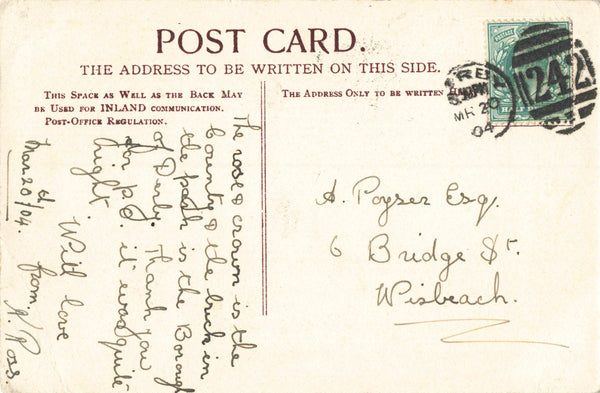 POST CARD.
THE ADDRESS TO BE WRITTEN ON THIS SIDE.
THIS SPACE AS WELL AS THE BACK MAY
BE USED FOR INLAND COMMUNICATION.
POST-OFFICE REGULATION.
THE ADDRESS ONLY TO BE WRITTEN
MR 20
04
242
The rose & crown is the
County & the buck in
the park is the Borough
of Derby. Thank you
for p.c. it was quite
right.
With love
from
A. Ross.
Mar 20th/04.
A. Poyser Esq.
6 Bridge St.
Wisbeach.